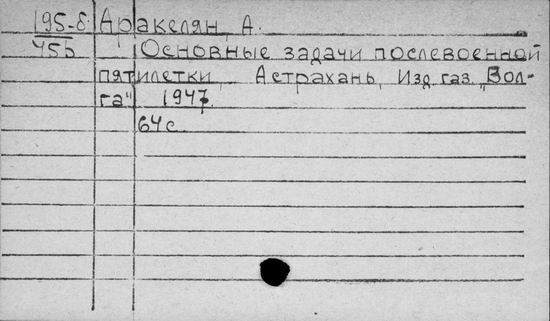 195-8 Аракелян, А.
455 Основные задачи послевоенной
пятилетки. Астрахань, Изд. газ. „Вол-
га“ 1947.
64 с.